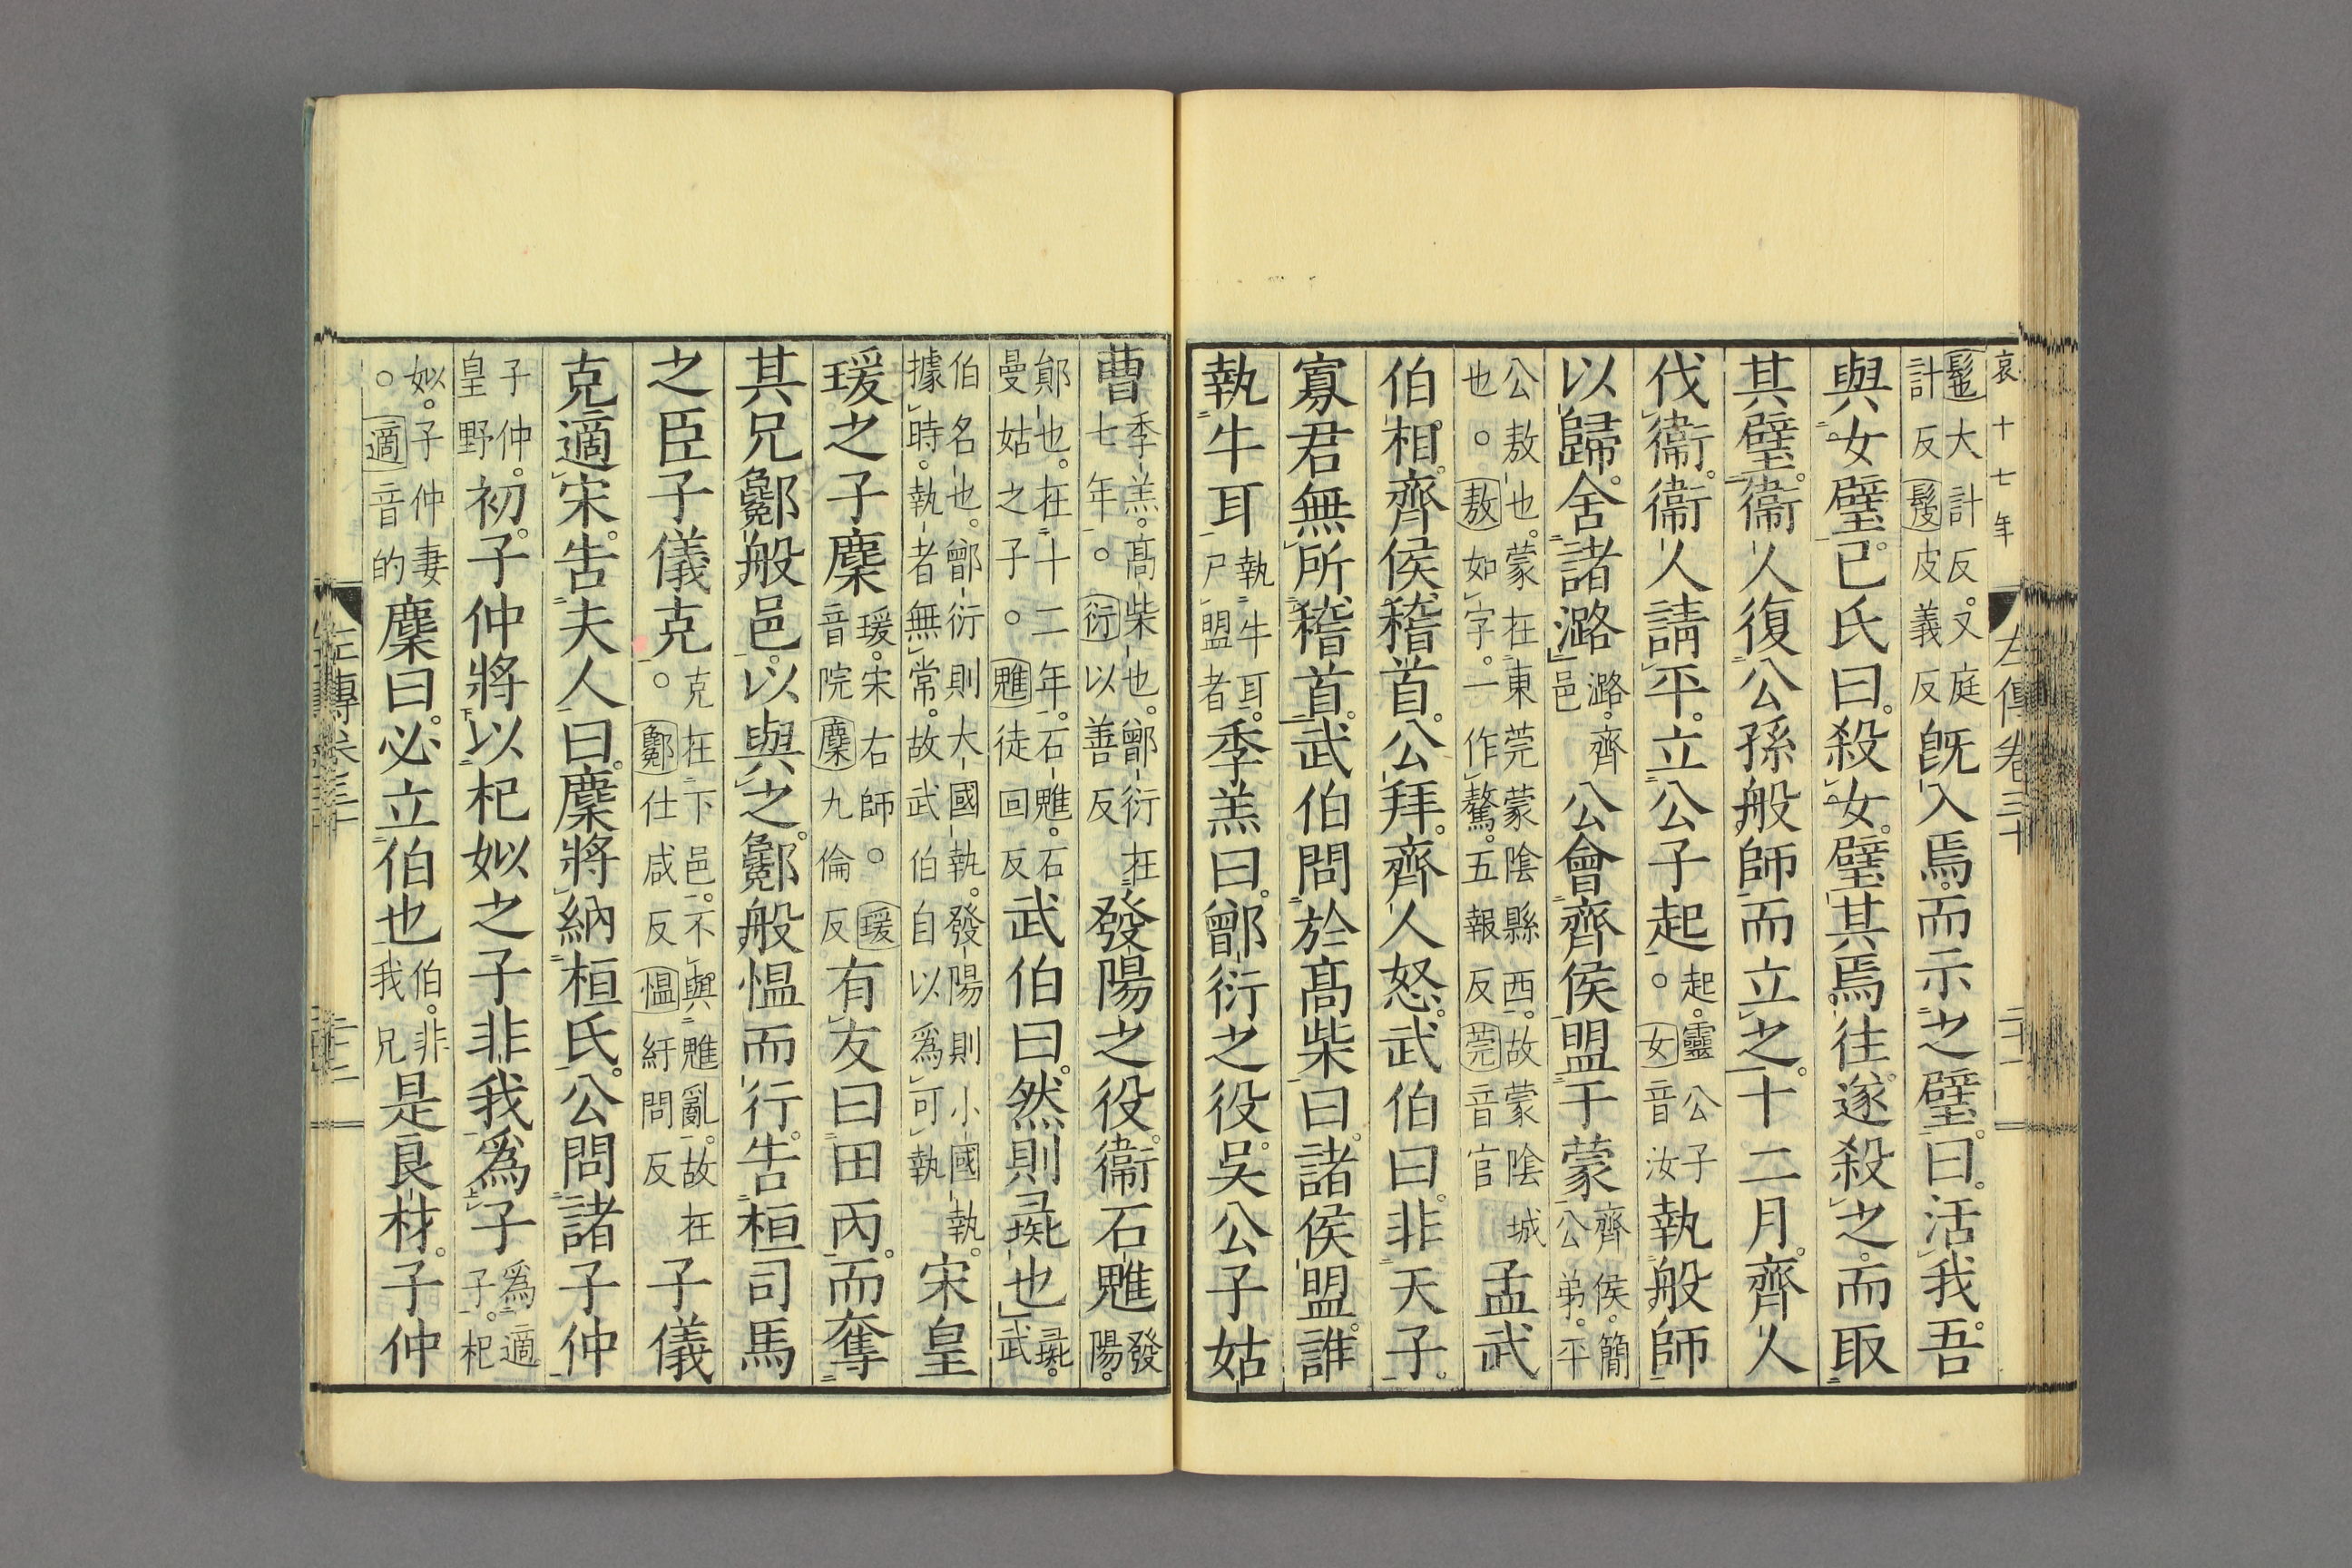 哀十七年 左傳卷三十 二十一
髢大計反。又庭計反髲皮義反既入焉。而示之璧。曰。活我。吾
與女璧。己氏曰。殺女。璧其焉往。遂殺之。而取
其璧。衞人復公孫般師而立之。十二月。齊人
伐衞。衞人請平。立公子起起。靈公子○女音汝執般師
以歸。舍諸潞潞。齊邑公會齊侯盟于蒙齊侯。簡公弟。平
公敖也。蒙在東莞蒙陰縣西。故蒙陰城也。○敖如字。一作驁。五報反莞音官孟武
伯相。齊侯稽首。公拜。齊人怒。武伯曰。非天子。
寡君無所稽首。武伯問於高柴曰。諸侯盟。誰
執牛耳執牛耳。尸盟者。季羔曰。鄫衍之役。吳公子姑
曹季羔。高柴也。鄫衍在七年。○衍以善反發陽之役。衞石魋發陽。
鄖也。在十二年。石魋。石曼姑之子。○魋徒回反武伯曰。然則彘也彘。武
伯名也。鄫衍則大國執。發陽則小國執。據時。執者無常。故武伯自以爲可執宋皇
瑗之子麇瑗。宋右師。○瑗音院麇九倫反有友曰田丙。而奪
其兄酁般邑。以與之。酁般慍而行。告桓司馬
之臣子儀克克在下邑。不與魋亂。故在○酁仕咸反慍紆問反子儀
克適宋。告夫人曰。麇將納桓氏。公問諸子仲
子仲。皇野初。子仲將以杞姒之子非我爲子爲適子。杞
姒。子仲妻○適音的麇曰。必立伯也伯。非我兄是良材。子仲